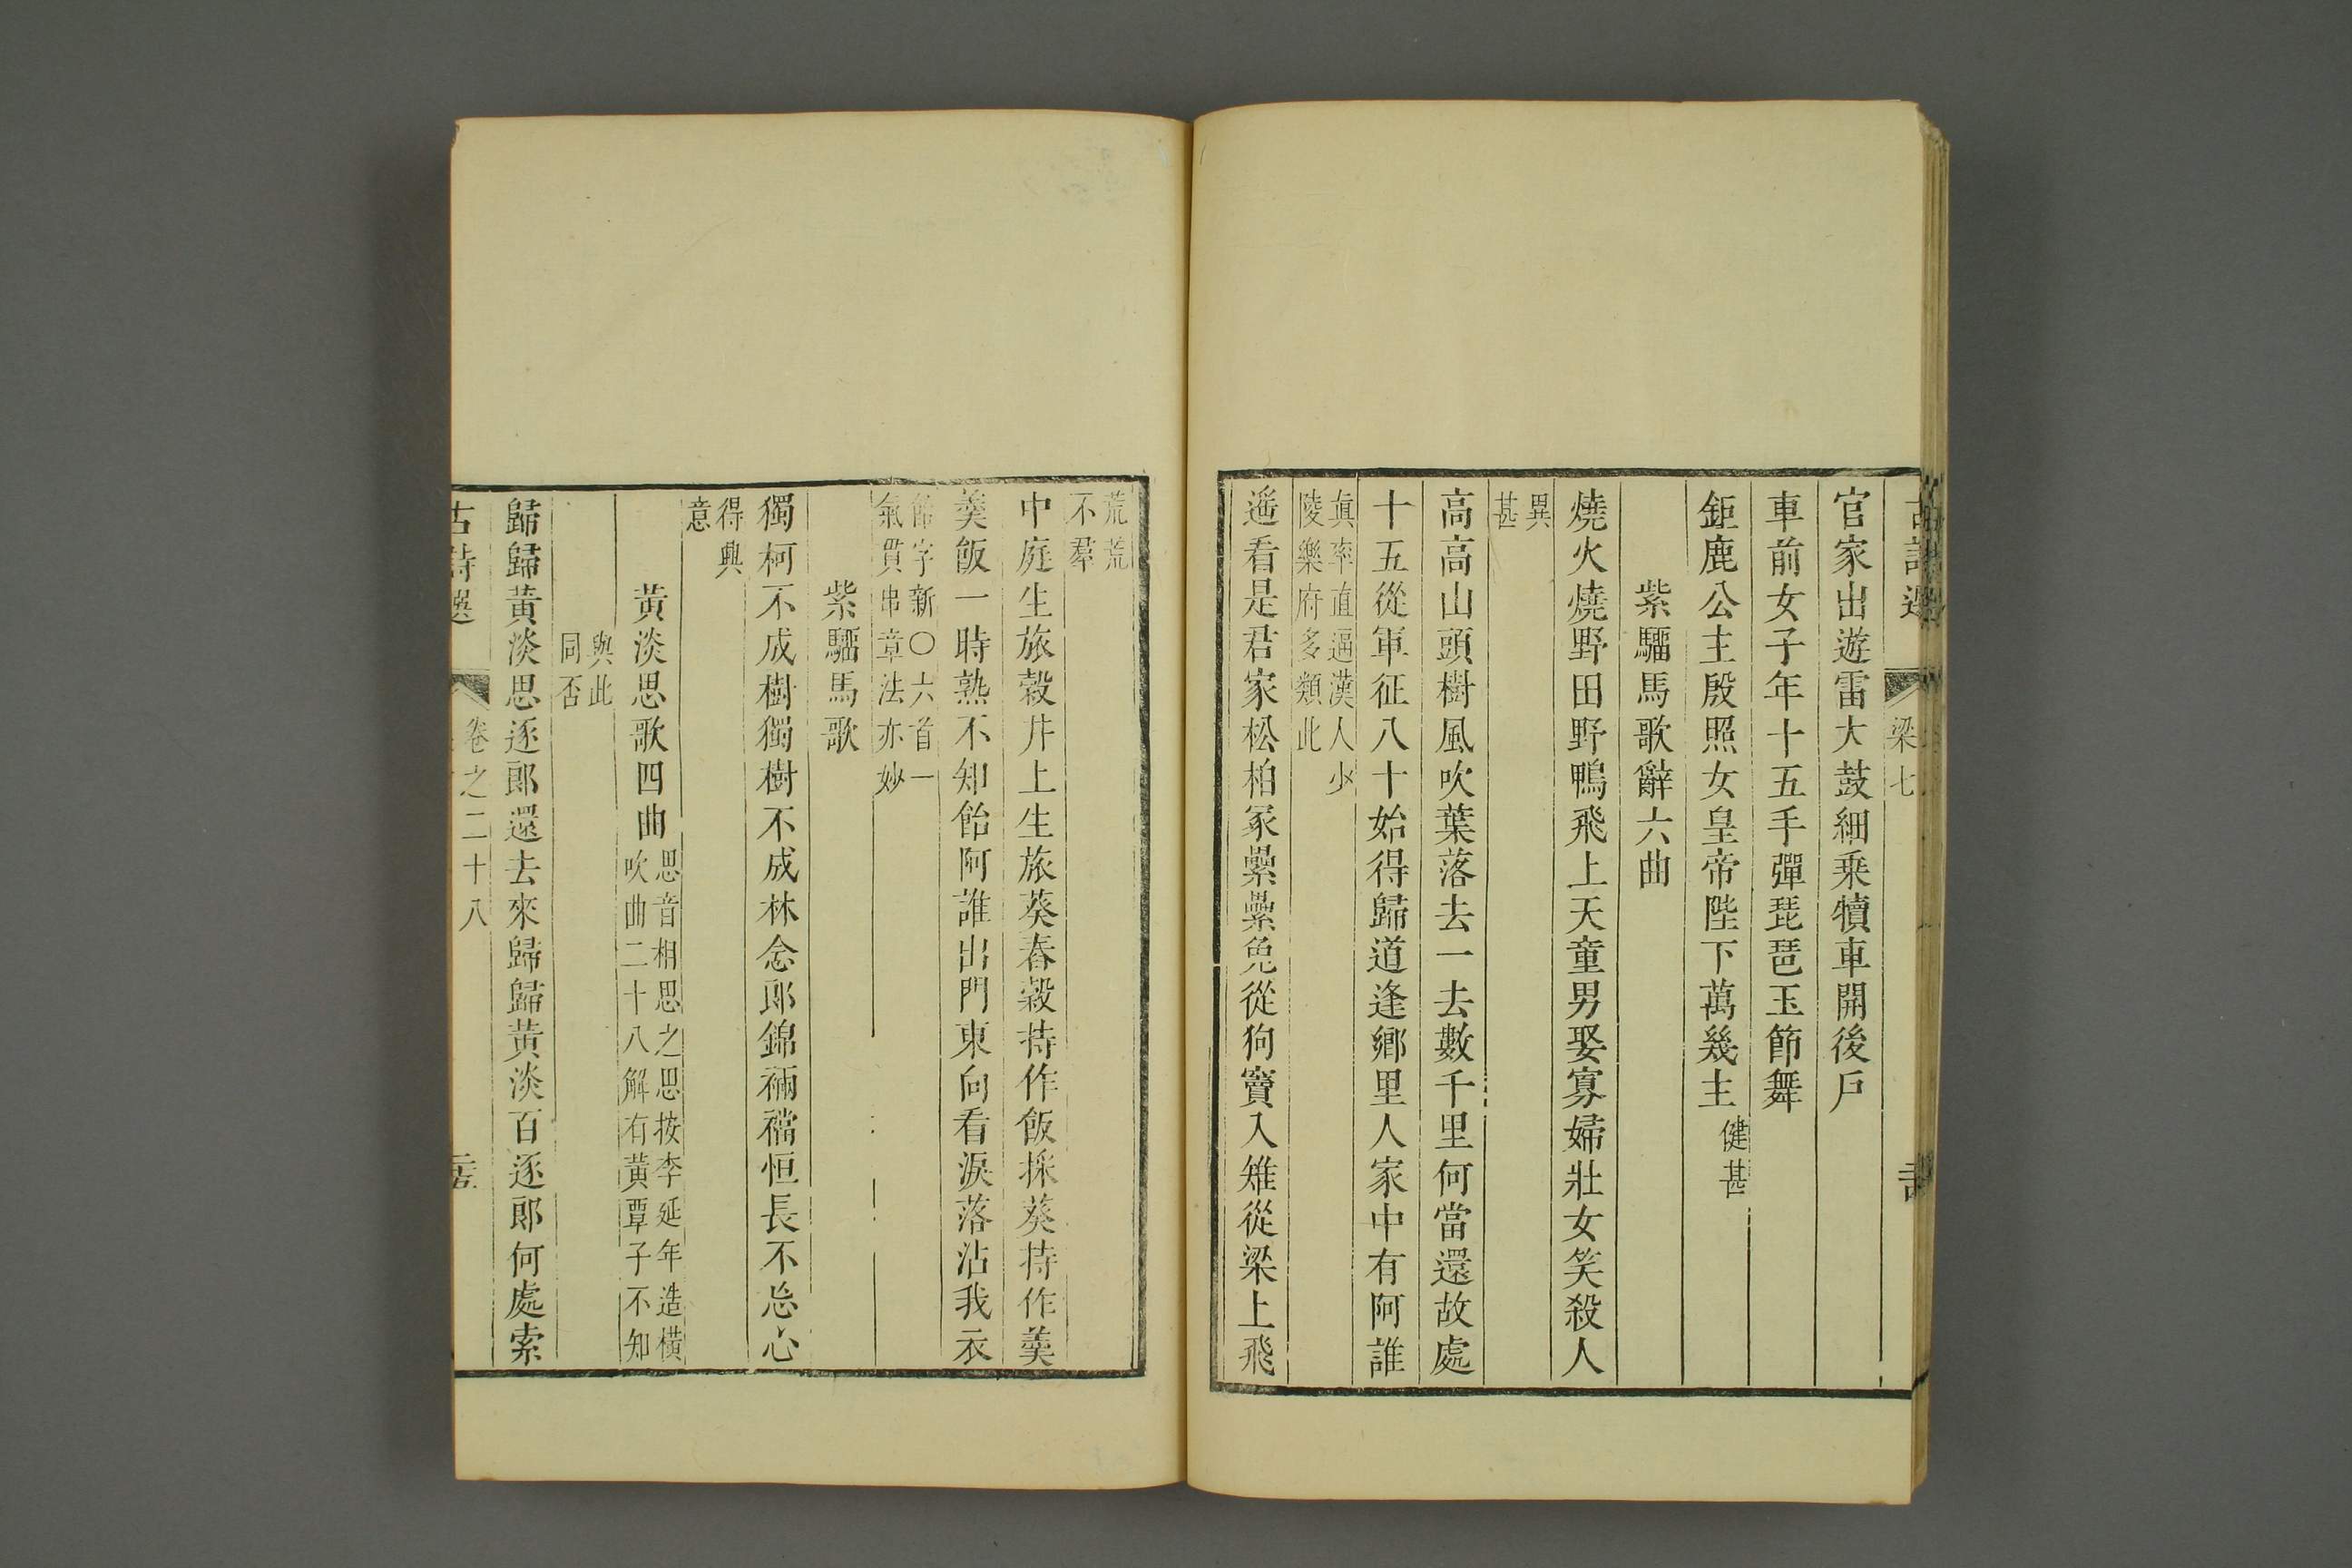 古詩選 梁七
官家出遊雷大鼓細乗犢車開後戸
車前女子年十五手彈琵琶玉節舞
鉅鹿公主殷照女皇帝陛下萬幾主健甚
紫騮馬歌辭六曲
燒火燒野田野鴨飛上天童男娶寡婦壯女笑殺人
異
甚
高高山頭樹風吹葉落去一去數千里何當還故處
十五從軍征八十始得歸道逢鄉里人家中有阿誰
眞率直逼漢人少
陵樂府多類此
遥看是君家松柏冢纍纍兔從狗竇入雉從梁上飛
荒荒
不羣
中庭生旅穀井上生旅葵舂穀持作飯採葵持作羹
羹飯一時熟不知飴阿誰出門東向看淚落沾我衣
飴字新○六首一
氣貫串章法亦妙
紫騮馬歌
獨柯不成樹獨樹不成林念郎錦裲襠恒長不忘心
得興
意
黃淡思歌四曲思音相思之思按李延年造橫
吹曲二十八解有黃覃子不知
與此
同否
歸歸黃淡思逐郎還去來歸歸黃淡百逐郎何處索
古詩選 卷之二十八